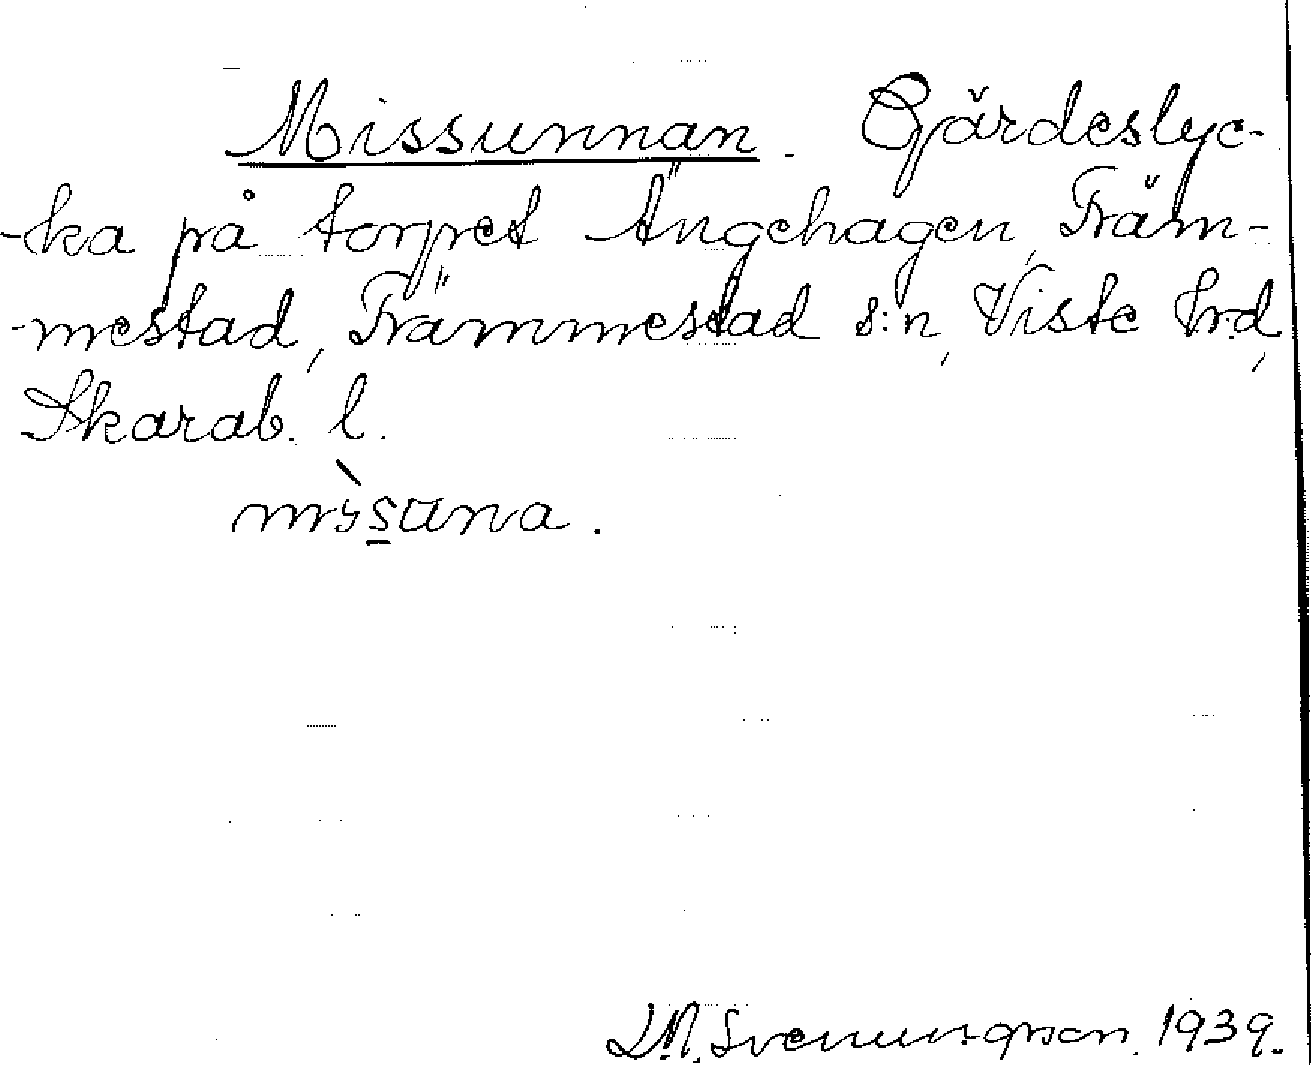 Missunnan. Gärdeslyc-
-ka på torpet Ängehagen, Främ-
-mestad, Främmestad s:n, Viste hrd,
Skarab. l.
mìsuna.
Svenungsson. 1939.